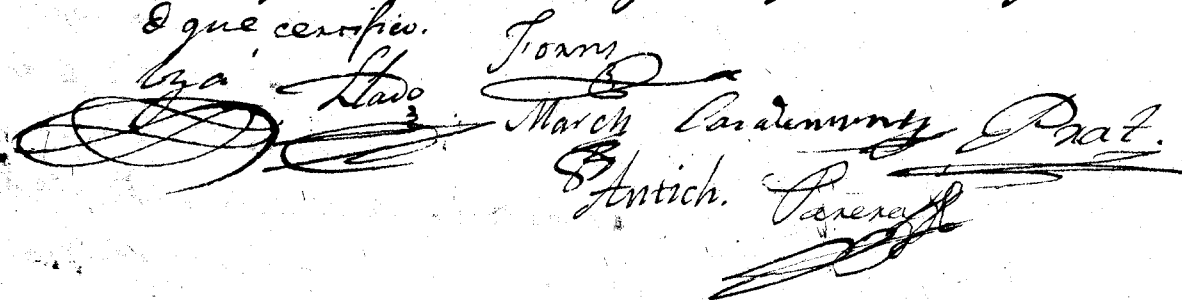 d que certifico.
Forns
Llado
March Casademunt Prat.
Antich. Parera